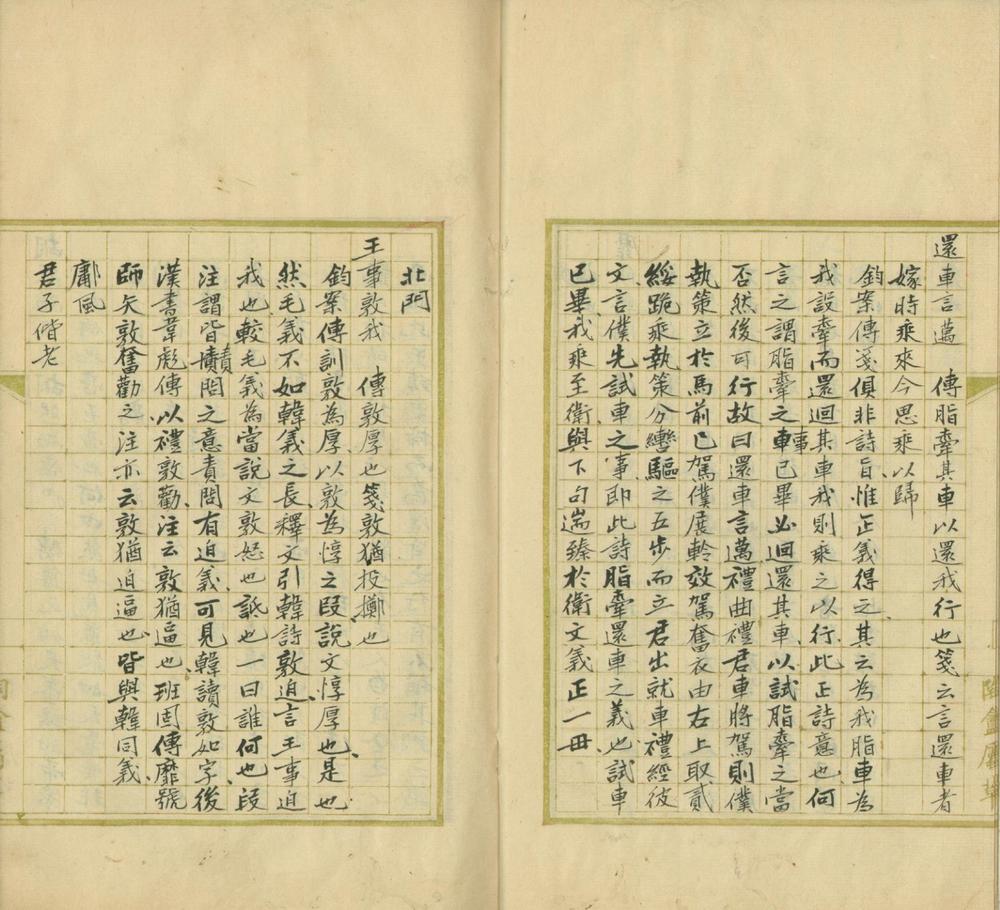 還車言邁　傳脂舝其車以還我行也箋云言還車者
嫁時乘來今思乘以歸
鈞案傳箋俱非詩旨惟正義得之其云為我脂車為
我設舝而還迴其車我則乘之以行此正詩意也何
言之謂脂舝之事車已畢必迴還其車以試脂舝之當
否然後可行故曰還車言邁禮曲禮君車將駕則僕
執策立於馬前已駕僕展軨效駕奮衣由右上取貳
綏跪乘執策分轡驅之五步而立君出就車禮經彼
文言僕先試車之事即此詩脂舝還車之義也試車
已畢我乘至衛與下句遄臻於衛文義正一毌
北門
王事敦我　傳敦厚也箋敦猶投擲也
鈞案傳訓敦為厚以敦為惇之叚說文惇厚也是也
然毛義不如韓義之長釋文引韓詩敦迫言王事迫
我也較毛義為當說文敦怒也詆也一曰誰何也段
注謂皆責問之意責問有迫義可見韓讀敦如字後
漢書韋彪傳以禮敦勸注云敦猶逼也班固傳靡號
師矢敦奮勸之注亦云敦猶迫逼也皆與韓同義
鄘風
君子偕老